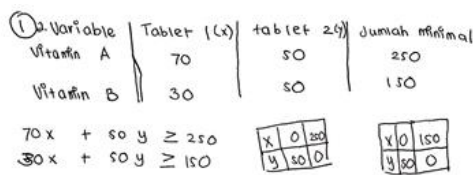 ① 2. Variabel | Tablet 1(x) | tablet 2(y) | Jumlah minimal
Vitamin A | 70 | 50 | 250
Vitamin B | 30 | 50 | 150
70x + 50 y ≥ 250
30x + 50 y ≥ 150
x 0 250
y 50 0
x 0 150
y 50 0